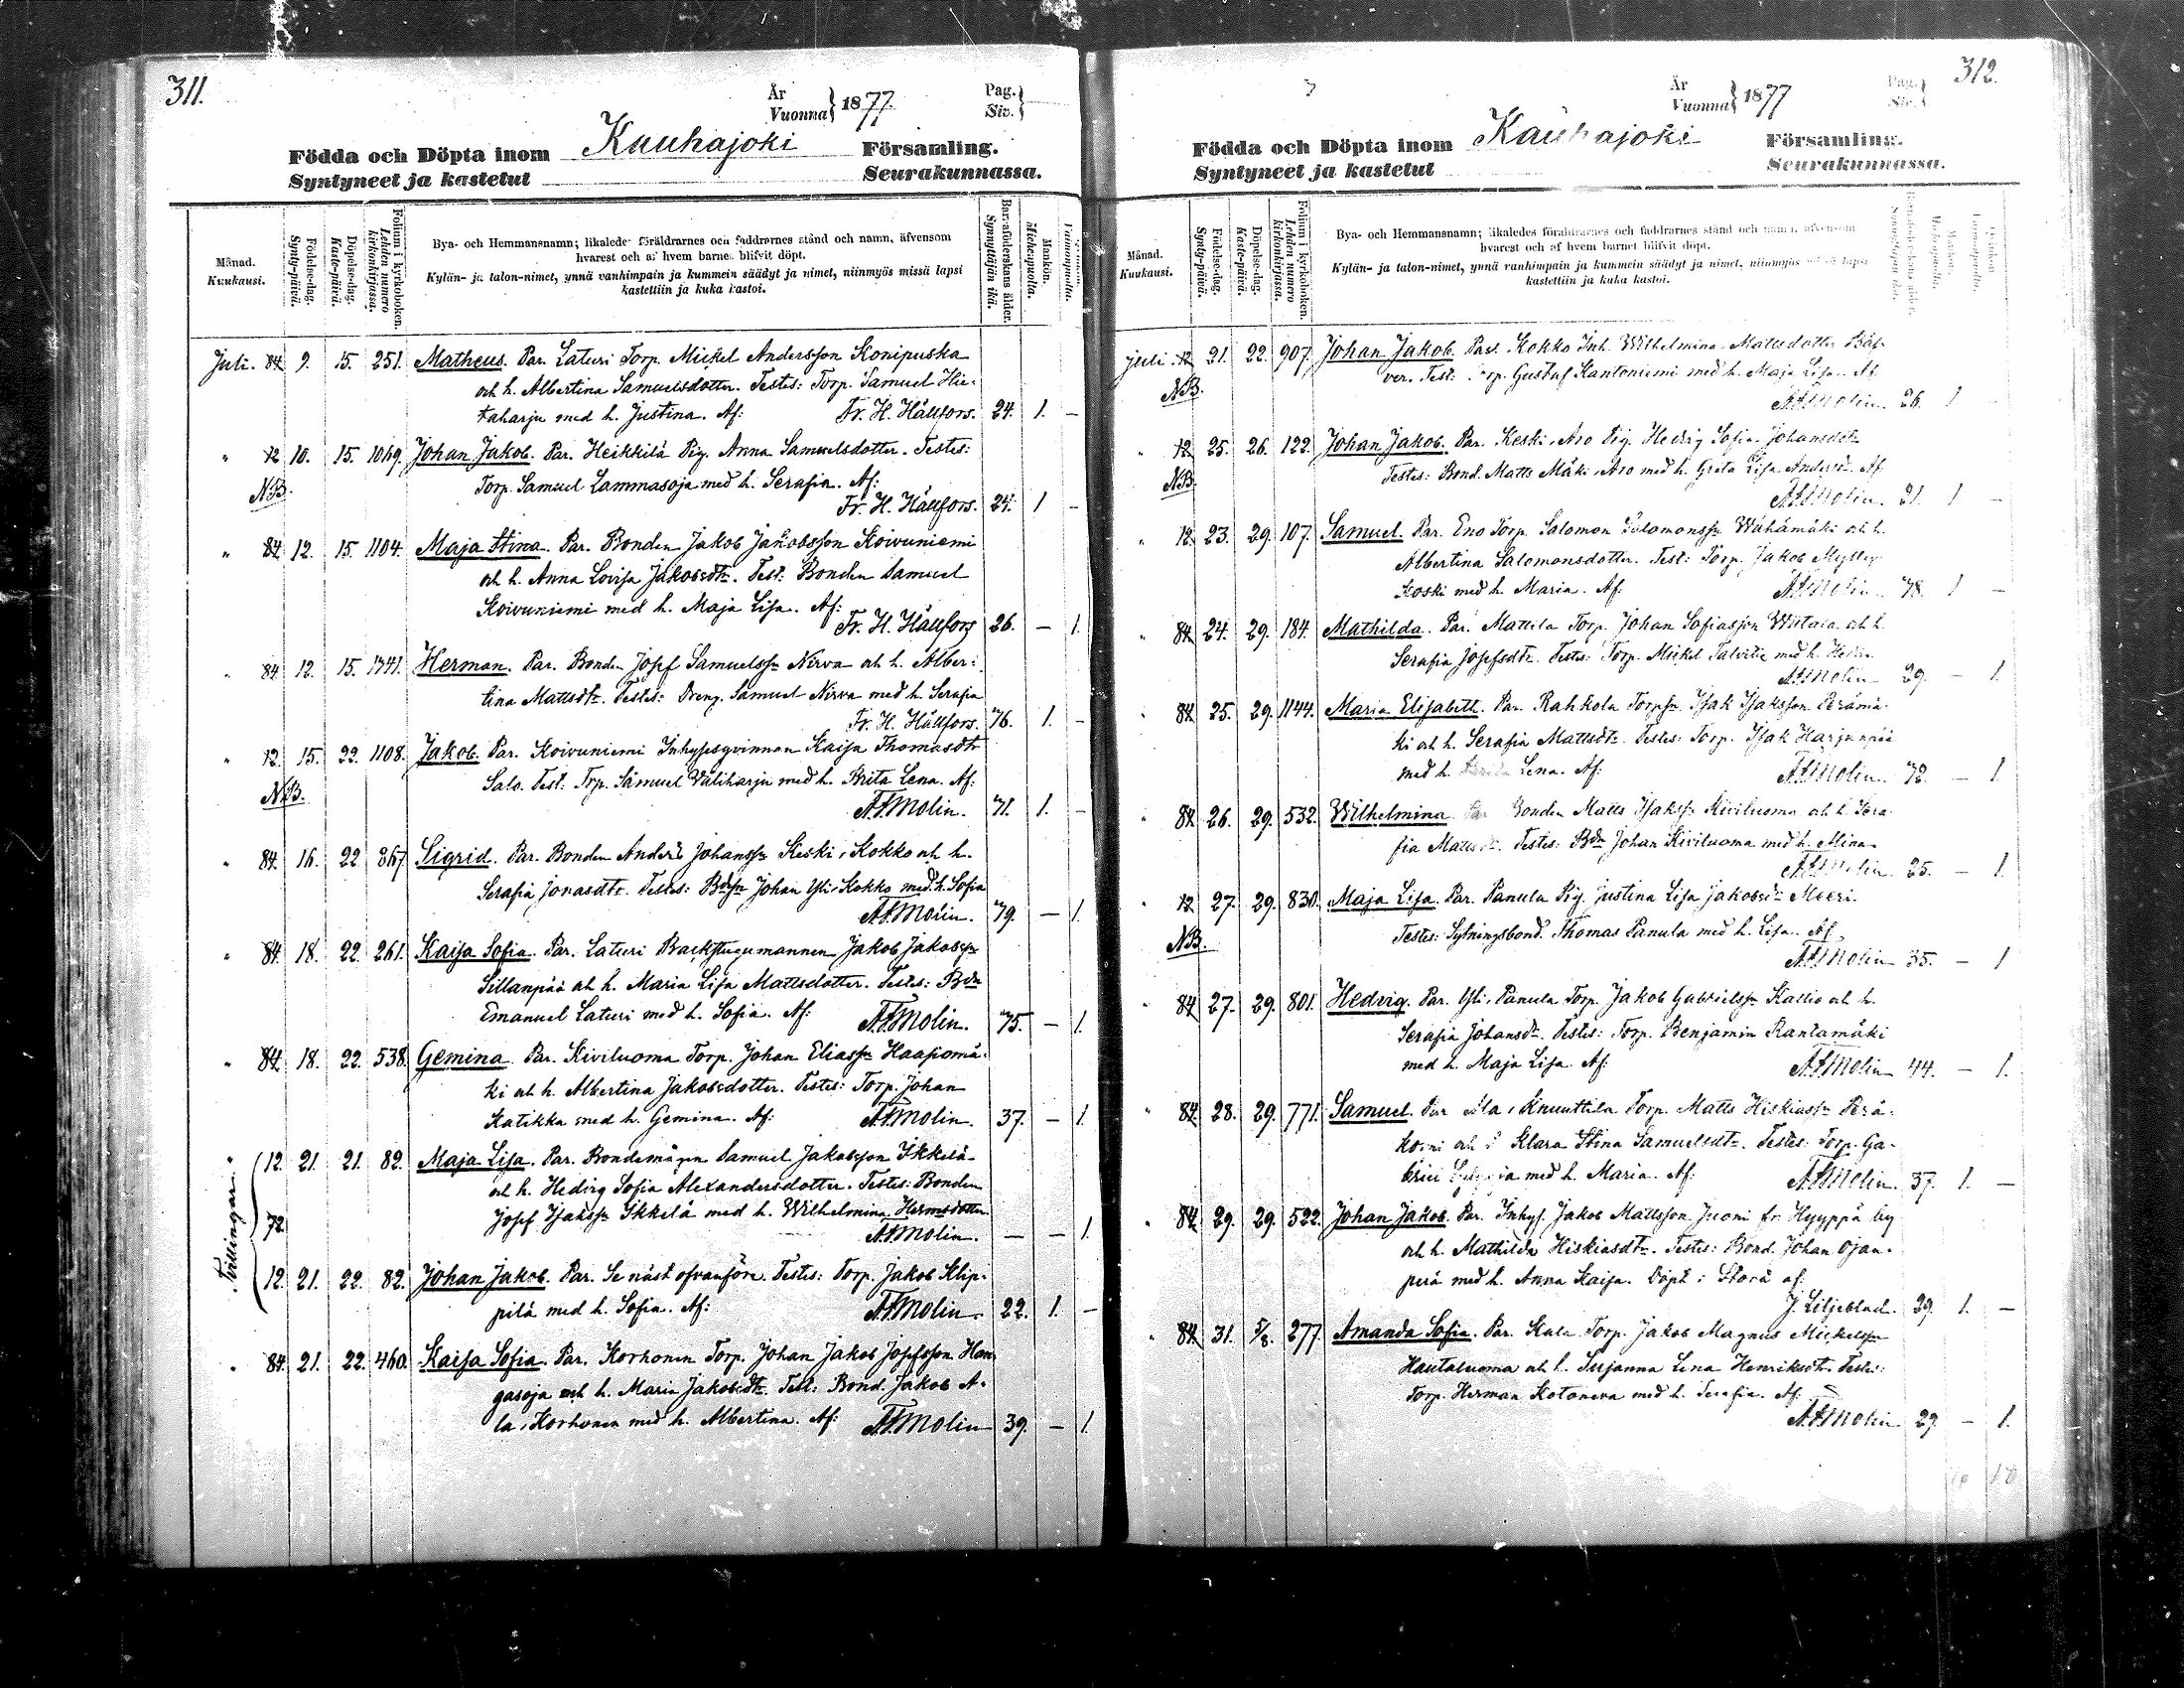 311.
År
Vuonna } 1877.
Pag.
Siv. }
Födda och Döpta inom Kauhajoki Församling.
Syntyneet ja kastetut Seurakunnassa.
Månad.
Kuukausi.
Födelse-dag.
Synty-päivä.
Döpelse-dag.
Kaste-päivä.
Folium i kyrkoboken.
Lehden numero kirkonkirjassa.
Bya- och Hemmansnamn; likaledes föräldrarnes och faddrarnes stånd och namn, äfvensom
hvarest och af hvem barnet blifvit döpt.
Kylän- ja talon-nimet, ynnä vanhimpain ja kummein säädyt ja nimet, niinmyös missä lapsi
kastettiin ja kuka kastoi.
Barnaföderskans ålder.
Synnyttäjän ikä.
Mankön.
Miehenpuolta.
Vaimonpuolta.
Juli. 84 9. 15. 251. Matheus. Par. Laturi Torp. Mickel Andersson Konipuska
och h. Albertina Samuelsdotter. Testes: Torp. Samuel Hie-
taharju med h. Justina. Af: Fr. H. Hällfors. 24. 1. –
" 12 10. 15. 1069. Johan Jakob. Par. Heikkilä Pig. Anna Samuelsdotter. Testes:
NB. Torp. Samuel Lammasoja med h. Serafia. Af:
Fr. H. Hällfors. 24. 1 –
" 84 12. 15. 1104. Maja Stina. Par. Bonden Jakob Jakobsson Koivuniemi
och h. Anna Lovisa Jakobsdtr. Test: Bonden Samuel
Koivuniemi med h. Maja Lisa. Af:
Fr. H. Hällfors 26. – 1.
" 84 12. 15. 1341. Herman. Par. Bonden Josef Samuelss. Nirva och h. Alber-
tina Mattsdtr. Testes: Dreng. Samuel Nirva med h. Serafia
Fr. H. Hällfors. 76. 1. –
" 12. 15. 22. 1108. Jakob. Par. Koivuniemi Inhysesqvinnan Kaisa Thomasdtr
NB. Salo. Test: Trp. Samuel Väliharju med h. Brita Lena. Af:
A.F. Molin. 71. 1. –
" 84 16. 22 867 Sigrid. Par. Bonden Anders Johanss. Keski-Kokko och h.
Serafia Jonasdtr. Testes: Bds. Johan Yli-Kokko med h. Sofia
A.F. Molin. 79. – 1.
" 84. 18. 22. 261. Kaisa Sofia. Par. Laturi Backstugumannen Jakob Jakobss.
Sillanpää och h. Maria Lisa Mattsdotter. Testes: Bdn
Emanuel Laturi med h. Sofia. Af: A.F. Molin. 75. – 1.
" 84 18. 22. 538. Gemina. Par. Kiviluoma Torp. Johan Eliass. Haapomä-
ki och h. Albertina Jakobsdotter. Testes: Torp. Johan
Katikka med h. Gemina. Af: A.F. Molin. 37. – 1.
Tvillingar.
" 12. 21. 21. 82. Maja Lisa. Par. Bondemågen Samuel Jakobsson Ikkelä
och h. Hedvig Sofia Alexandersdotter. Testes: Bonden
72. Josef Isakss. Ikkelä med h. Wilhelmina Hermsdotter
A.F. Molin. – – 1.
12. 21. 22. 82. Johan Jakob. Par. Se näst ofvanföre. Testes: Torp. Jakob Klip-
pilä med h. Sofia. Af: A.F. Molin. 22. 1. –
" 84. 21. 22. 460. Kaisa Sofia. Par. Korhonen Torp. Johan Jakob Josefsson Han
gasoja och h. Maria Jakobsdtr. Test: Bond. Jakob A-
la-Korhonen med h. Albertina. Af: A.F. Molin 39. – 1.
312.
År
Vuonna } 1877
Pag.
Siv. }
Födda och Döpta inom Kauhajoki Församling.
Syntyneet ja kastetut Seurakunnassa.
Månad.
Kuukausi.
Födelse-dag.
Synty-päivä.
Döpelse-dag.
Kaste-päivä.
Folium i kyrkoboken.
Lehden numero kirkonkirjassa.
Bya- och Hemmansnamn; likaledes föräldrarnes och faddrarnes stånd och namn, äfvensom
hvarest och af hvem barnet blifvit döpt.
Kylän- ja talon-nimet, ynnä vanhimpain ja kummein säädyt ja nimet, niinmyös missä lapsi
kastettiin ja kuka kastoi.
Juli. 12 21. 22. 907. Johan Jakob. Par. Kokko Inh. Wilhelmina Mattsdotter Bäf-
NB. ver. Test: Torp. Gustaf Kantoniemi med h. Maja Lisa. Af
A.F. Molin. 26. 1 –
" 12 25. 26. 122. Johan Jakob. Par. Keski-Aro Pig. Hedvig Sofia Johansdtr
NB. Testes: Bond. Matts Mäki-Aro med h. Greta Lisa Andersd. Af
A.F. Molin. 21. 1 –
" 12. 23. 29. 107. Samuel. Par. Eno Torp. Salomon Salomonss. Wähämäki och h.
Albertina Salomonsdotter. Test: Torp. Jakob Mylly-
koski med h. Maria. Af: A.F. Molin. 78. 1 –
" 84 24. 29. 184. Mathilda. Par. Mattila Torp. Johan Sofiasson Wiitala och h.
Serafia Josefsdtr. Testes: Torp. Mickel Talvitie med h.
A.F. Molin 29. – 1.
" 84 25. 29. 1144. Maria Elisabeth. Par. Rahkola Torps. Isak Isaksson Perämä-
ki och h. Serafia Mattsdtr. Testes: Torp. Isak Harjunpää
med h. Lena. Af: A.F. Molin. 72. – 1
" 84 26. 29. 532. Wilhelmina. Par. Bonden Matts Isakss. Kiviluoma och h. Sera-
fia Mattsdtr. Testes: Bdn Johan Kiviluoma med h. Mina
A.F. Molin 25. – 1.
" 12 27. 29. 830. Maja Lisa. Par. Panula Pig. Justina Lisa Jakobsdtr Meeri.
NB. Testes: Sytningsbond. Thomas Panula med h. Lisa. Af,
A.F. Molin 35. – 1
" 84 27. 29. 801. Hedvig. Par. Yli-Panula Torp. Jakob Gabrielss. Kallio och h.
Serafia Johansdtr. Testes: Torp. Benjamin Rantamäki
med h. Maja Lisa. Af: A.F. Molin 44. – 1.
" 84 28. 29. 771. Samuel. Par. Ala-Knuuttila Torp. Matts Hiskiass. Perä-
korpi och h. Klara Stina Samuelsdtr. Testes: Torp. Ga-
briel med h. Maria. Af: A.F. Molin. 37. 1. –
" 84 29. 29. 522. Johan Jakob. Par. Inhys. Jakob Mattsson Juoni fr. Hyyppä by
och h. Mathilda Hiskiasdtr. Testes: Bond. Johan Ojan-
perä med h. Anna Kaisa. Döpt i Storå af:
J. Liljeblad. 29. 1. –
" 84. 31. 5/8. 277. Amanda Sofia. Par. Kula Torp. Jakob Magnus Mickelss.
Hautaluoma och h. Susanna Lena Henriksdtr. Testes:
Torp. Herman Kotoneva med h. Serafia. Af:
A.F. Molin 29. – 1.